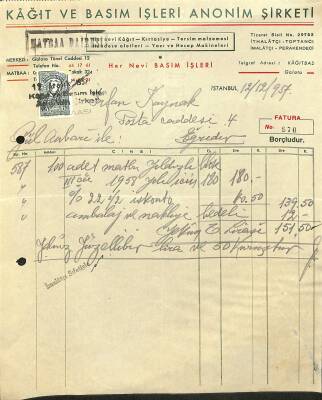 KÂĞIT VE BASIM İŞLERİ ANONİM ŞİRKETİ
MATBAA DAİRESİ
Kâğıt - Kırtasiye - Tersim malzemesi
Mühâsse aletleri - Yazı ve Hesap Makineleri
Ticaret Sicil No. 29752
İTHALÂTÇI - TOPTANCI
İMALÂTÇI - PERAKENDECİ
MERKEZİ: Galata Tünel Caddesi 12
Telefon No.
MATBAA:
Her Nevi BASIM İŞLERİ
Telgraf Adresi: KÂĞITBAS
Galata
İSTANBUL, 12/12/957
Irfan Kaynak
Posta caddesi 4
Eğridir
FATURA
No. 570
Borçludur.
CİNSİ
587 100 adet matbu
1958 yılı için 180 180.-
% 22 1/2 iskonto 40.50 139.50
ambalaj ve nakliye bedeli 12.-
Yekûn T. Lirası 151.50
Yalnız Yüzellibir lira ve 50 kuruştur